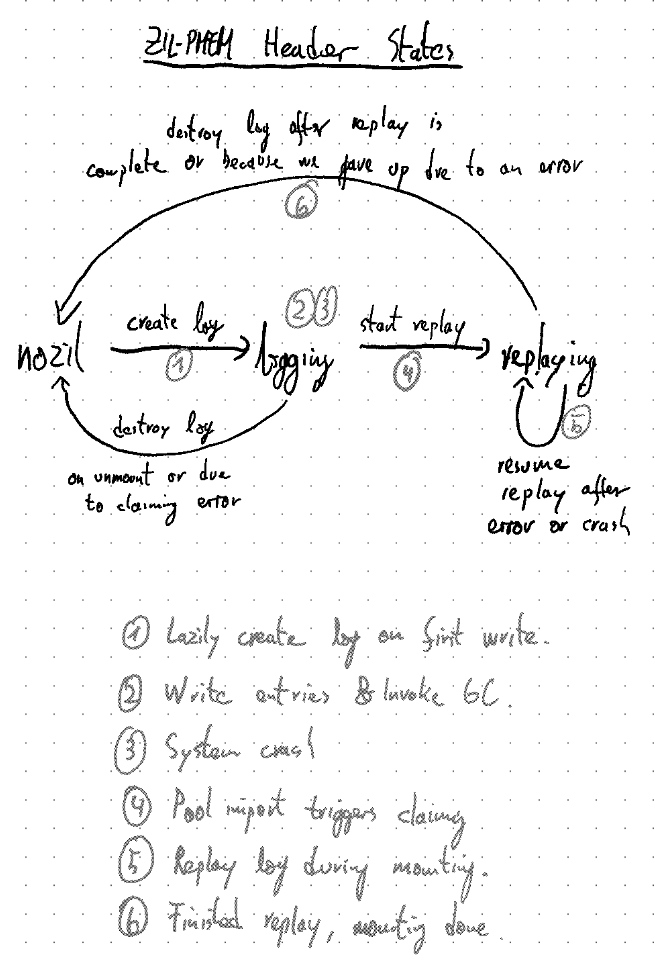 ZIL-PMEM Header States
destroy log after replay is
complete or because we gave up due to an error
6
2 3
create log
start replay
nozil
logging
replaying
1
4
5
destroy log
on unmount or due
to claiming error
resume
replay after
error or crash
1 Lazily create log on first write.
2 Write entries & Invoke GC.
3 System crash
4 Pool import triggers claiming
5 Replay log during mounting.
6 Finished replay, mounting done.